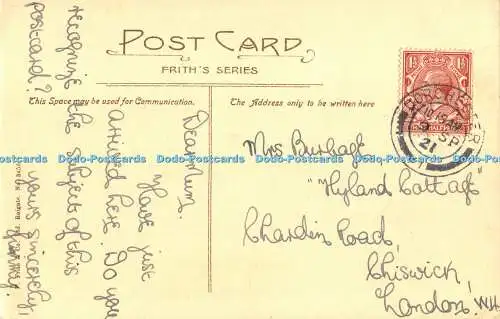 POST CARD
FRITH'S SERIES
This Space may be used for Communication.
The Address only to be written here
Dear Mum.
Have just
arrived here. Do you
recognize the subjects of this
postcard?
yours sincerely,
Mrs Burbage
"Hyland Cottage"
Chardin Road,
Chiswick,
London. W4
10 15 AM
SP
21
Dodo-Postcards Dodo-Postcards Dodo-Postcards Dodo-Postcards Dodo-Postcards Dodo-Postcards
Reigate.